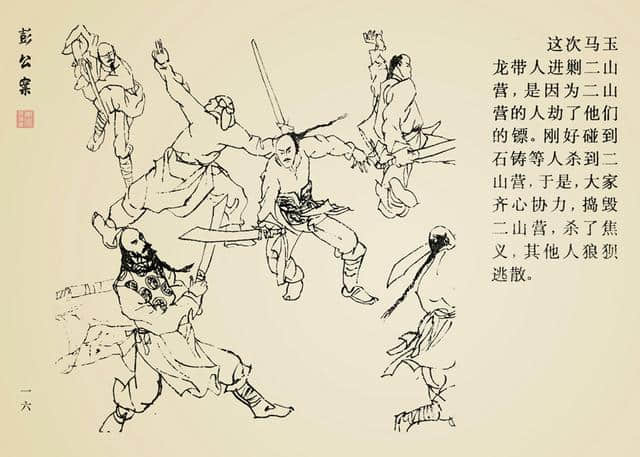 彭公案
这次马玉
龙带人进剿二山
营，是因为二山
营的人劫了他们
的镖。刚好碰到
石铸等人杀到二
山营，于是，大家
齐心协力，捣毁
二山营，杀了焦
义，其他人狼狈
逃散。
一六